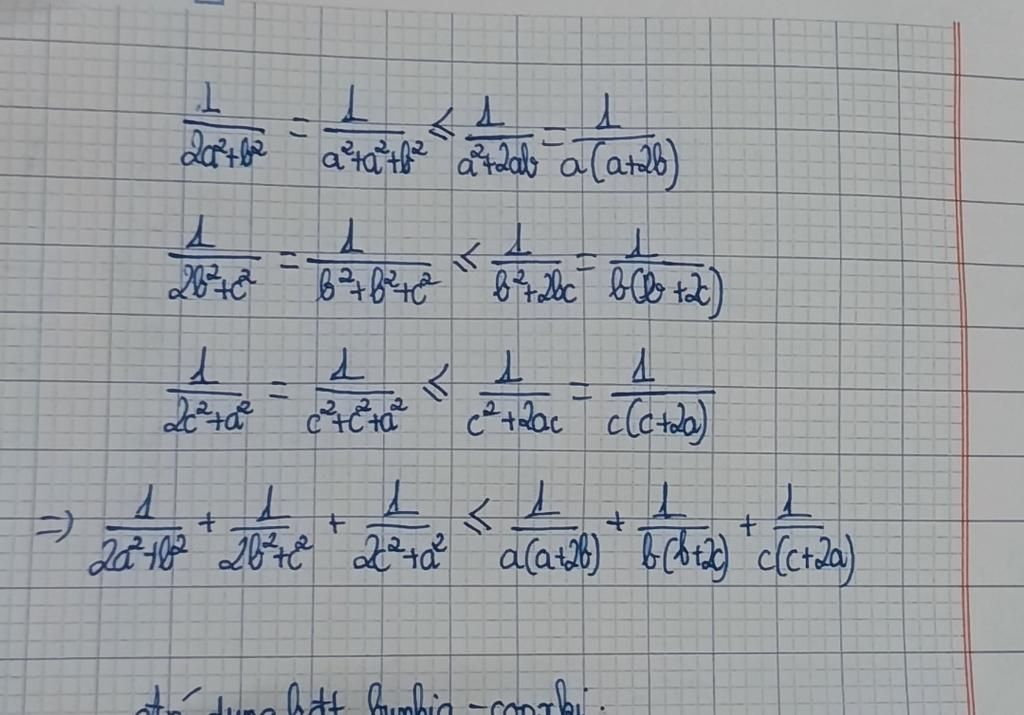 1/(2a²+b²) = 1/(a²+a²+b²) ≤ 1/(a²+2ab) = 1/(a(a+2b))
1/(2b²+c²) = 1/(b²+b²+c²) ≤ 1/(b²+2bc) = 1/(b(b+2c))
1/(2c²+a²) = 1/(c²+c²+a²) ≤ 1/(c²+2ac) = 1/(c(c+2a))
=> 1/(2a²+b²) + 1/(2b²+c²) + 1/(2c²+a²) ≤ 1/(a(a+2b)) + 1/(b(b+2c)) + 1/(c(c+2a))